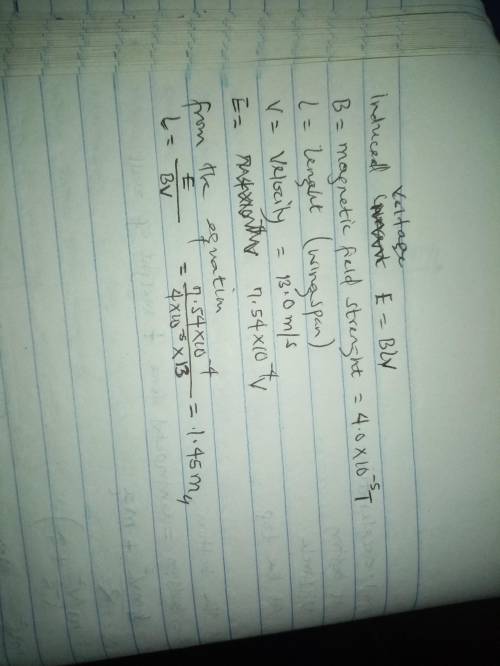 Induced Voltage E = BLV
B = magnetic field strenght = 4.0 × 10⁻⁵ T
L = lenght (wingspan)
V = Velocity = 13.0 m/s
E = 7.54 × 10⁻⁴ V
from the equation
L = E / BV = 7.54 × 10⁻⁴ / 4 × 10⁻⁵ × 13 = 1.45 m